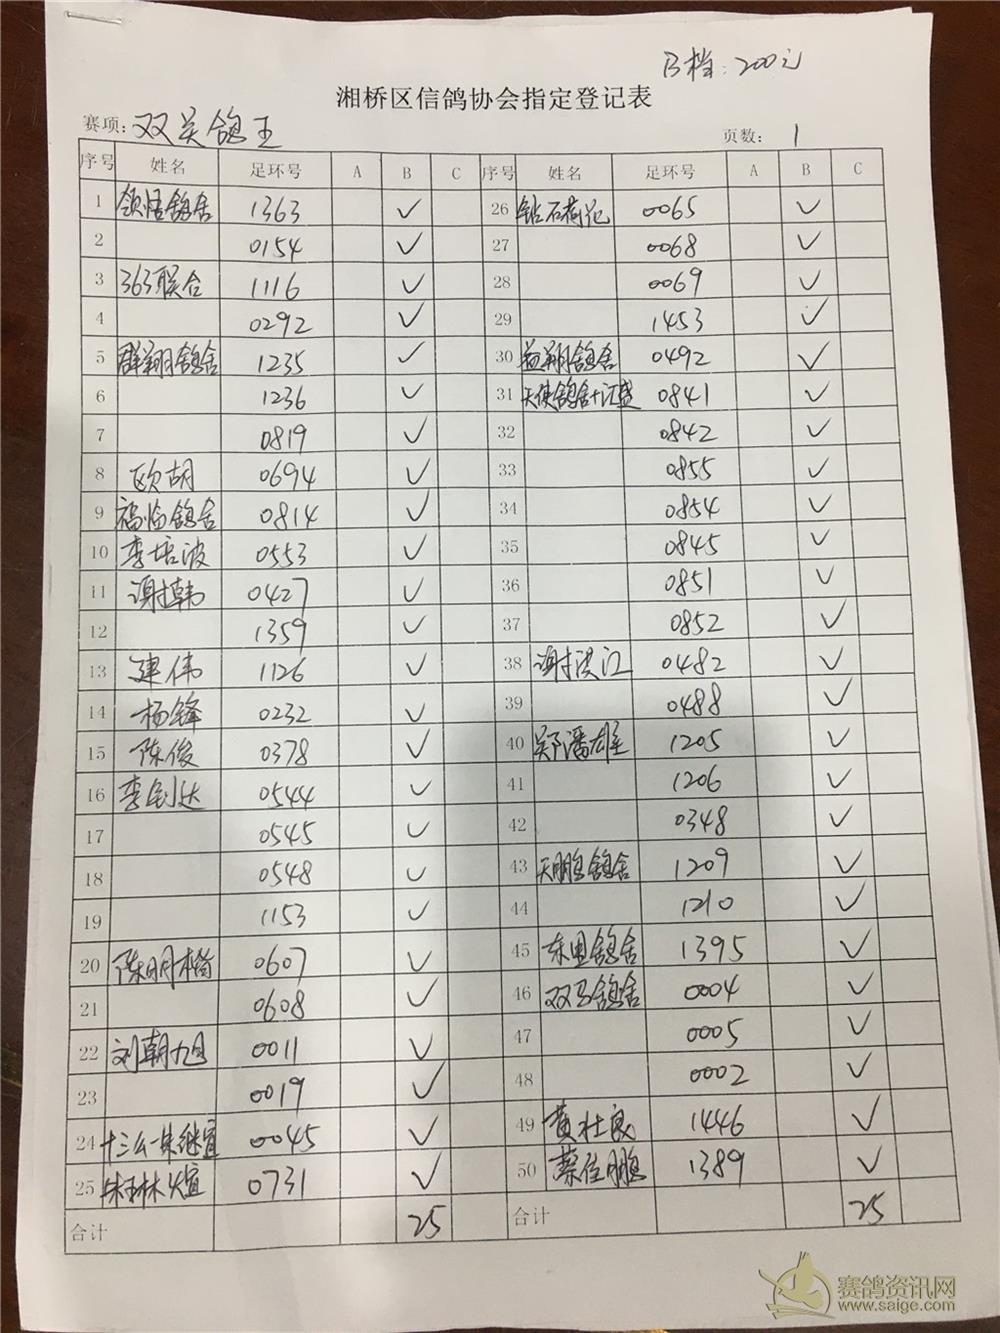 B档:200元
湘桥区信鸽协会指定登记表
赛项:双关鸽王 页数: 1
序号 姓名 足环号 A B C 序号 姓名 足环号 A B C
1 领悟鸽舍 1363 ✓ 26 钻石荷花 0065 ✓
2 0154 ✓ 27 0068 ✓
3 363联合 1116 ✓ 28 0069 ✓
4 0292 ✓ 29 1453 ✓
5 群翔鸽舍 1235 ✓ 30 益翔鸽舍 0492 ✓
6 1236 ✓ 31 天使鸽舍+汇盛 0841 ✓
7 0819 ✓ 32 0842 ✓
8 欧胡 0694 ✓ 33 0855 ✓
9 福临鸽舍 0814 ✓ 34 0854 ✓
10 李培波 0553 ✓ 35 0845 ✓
11 谢韩 0427 ✓ 36 0851 ✓
12 1359 ✓ 37 0852 ✓
13 建伟 1126 ✓ 38 谢洪江 0482 ✓
14 杨锋 0232 ✓ 39 0488 ✓
15 陈俊 0378 ✓ 40 郑潘雄 1205 ✓
16 李剑达 0544 ✓ 41 1206 ✓
17 0545 ✓ 42 0348 ✓
18 0548 ✓ 43 天鹏鸽舍 1209 ✓
19 1153 ✓ 44 1210 ✓
20 陈明楷 0607 ✓ 45 东里鸽舍 1395 ✓
21 0608 ✓ 46 双马鸽舍 0004 ✓
22 刘朝旭 0011 ✓ 47 0005 ✓
23 0019 ✓ 48 0002 ✓
24 十三公-朱继宣 0045 ✓ 49 黄壮良 1446 ✓
25 朱林 0731 ✓ 50 蔡佳鹏 1389 ✓
合计 25 合计 25
赛鸽资讯网
www.saige.com